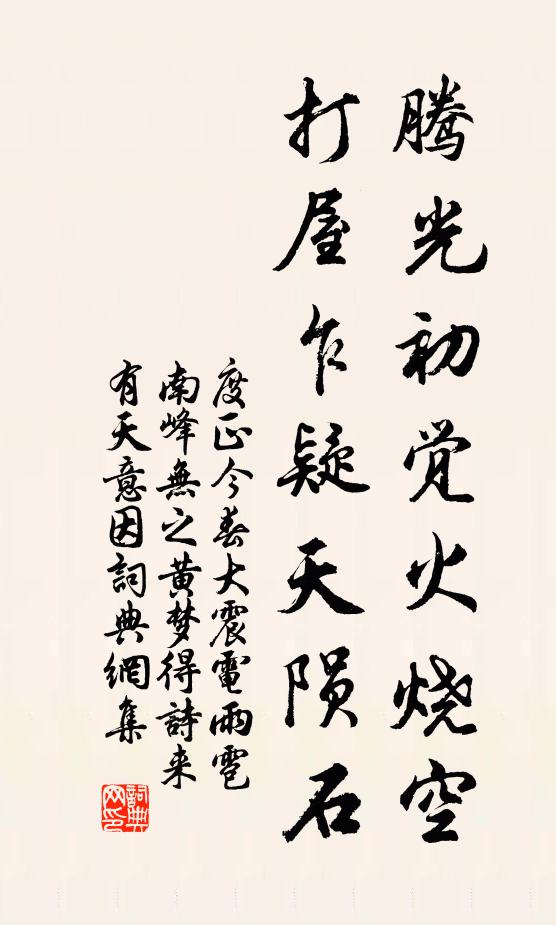 腾光初觉火烧空
打屋乍疑天陨石
度正今春大震電雨雹
南峰無之黄梦得詩来
有天意因詞典網集
詞典
网印